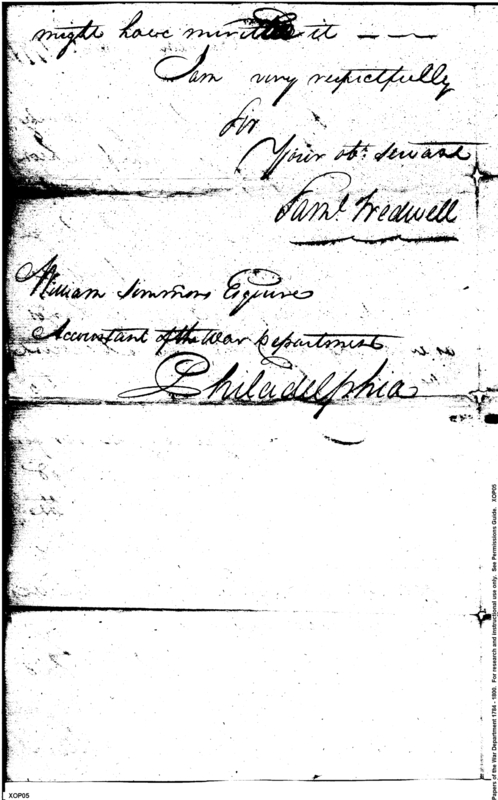 might have merited it — — —
I am very respectfully
Sir
Your obt. servant
Saml. Tredwell
William Simmons Esquire
Accountant of the War Department
Philadelphia
Papers of the War Department 1784 - 1800. For research and instructional use only. See Permissions Guide. XOP05
XOP05